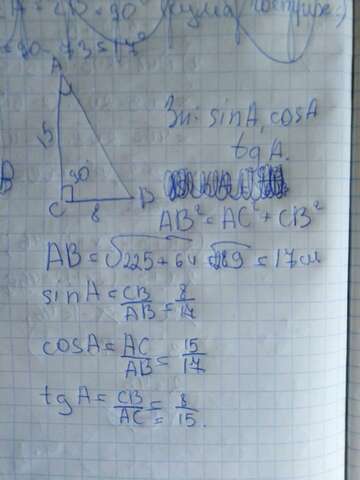 90 - 73 = 17°
A
Зн: sinA, cosA
tgA.
90°
C 8 B
AB² = AC² + CB²
AB = √225+64 = √289 = 17 см
sinA = CB/AB = 8/17
cosA = AC/AB = 15/17
tgA = CB/AC = 8/15.